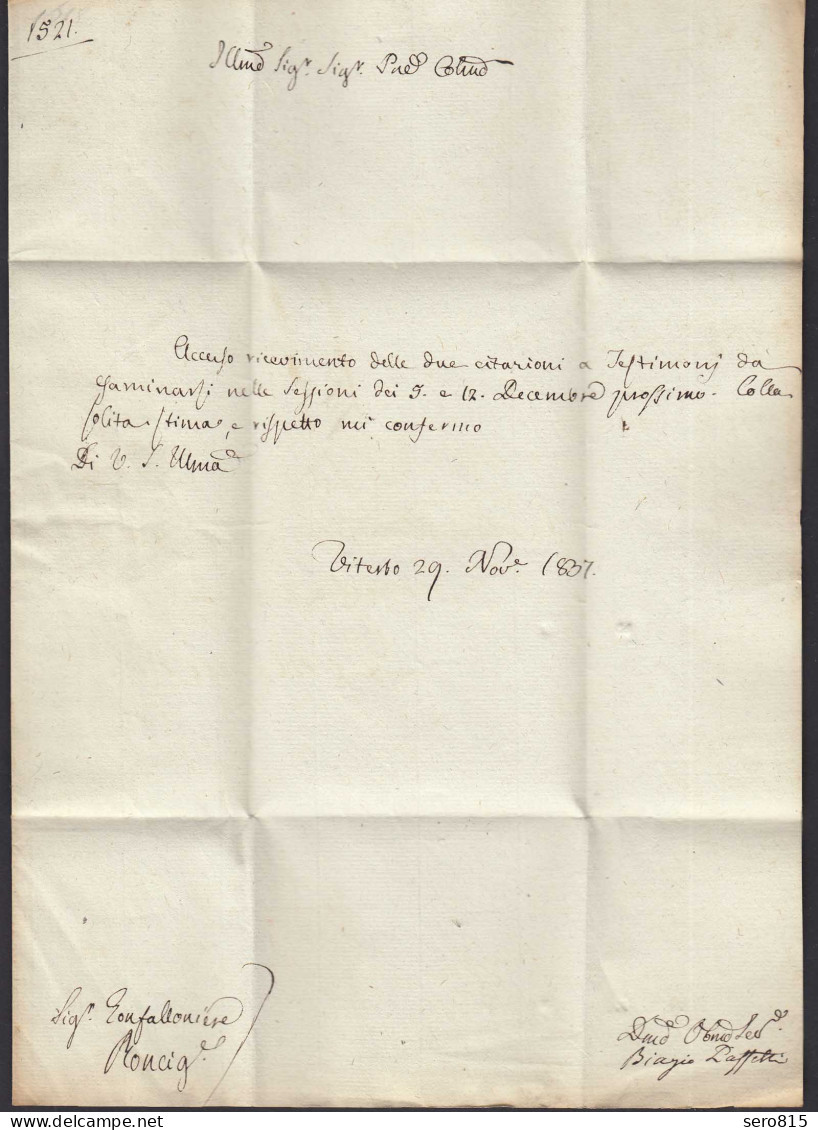 1521.
Illmo Sigr. Sigr. Pne Colmo
Accuso ricevimento delle due citazioni a Testimonj da
esaminarsi nelle Sessioni dei 5. e 12. Decembre prossimo. Colla
solita stima, e rispetto mi confermo
Di V. S. Illma
Viterbo 29. Nove. 1837.
Sigr. Gonfalloniere
Roncige.
Dmo Obmo Ser.
Biagio
sero815